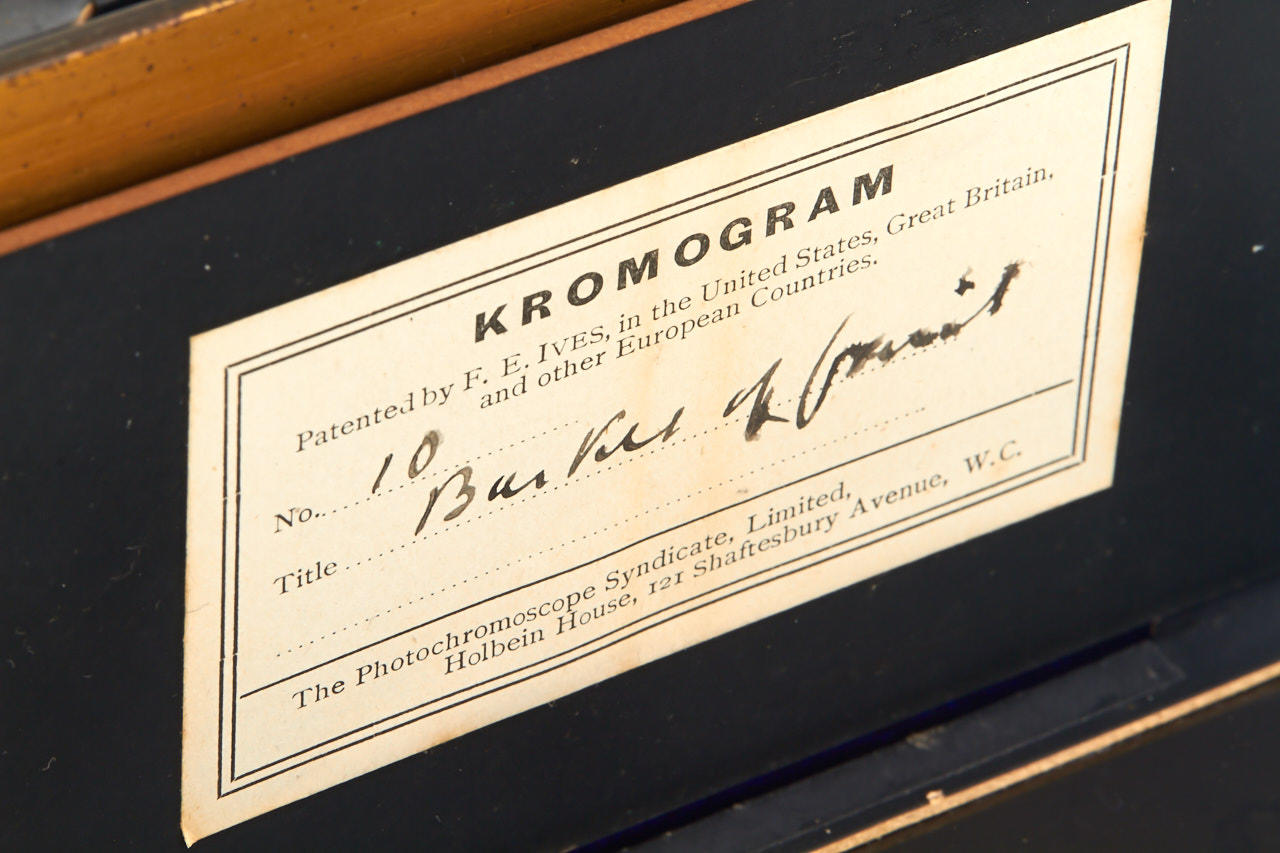 KROMOGRAM
Patented by F. E. IVES, in the United States, Great Britain,
and other European Countries.
No. 10
Title Basket of Fruit
The Photochromoscope Syndicate, Limited,
Holbein House, 121 Shaftesbury Avenue, W.C.